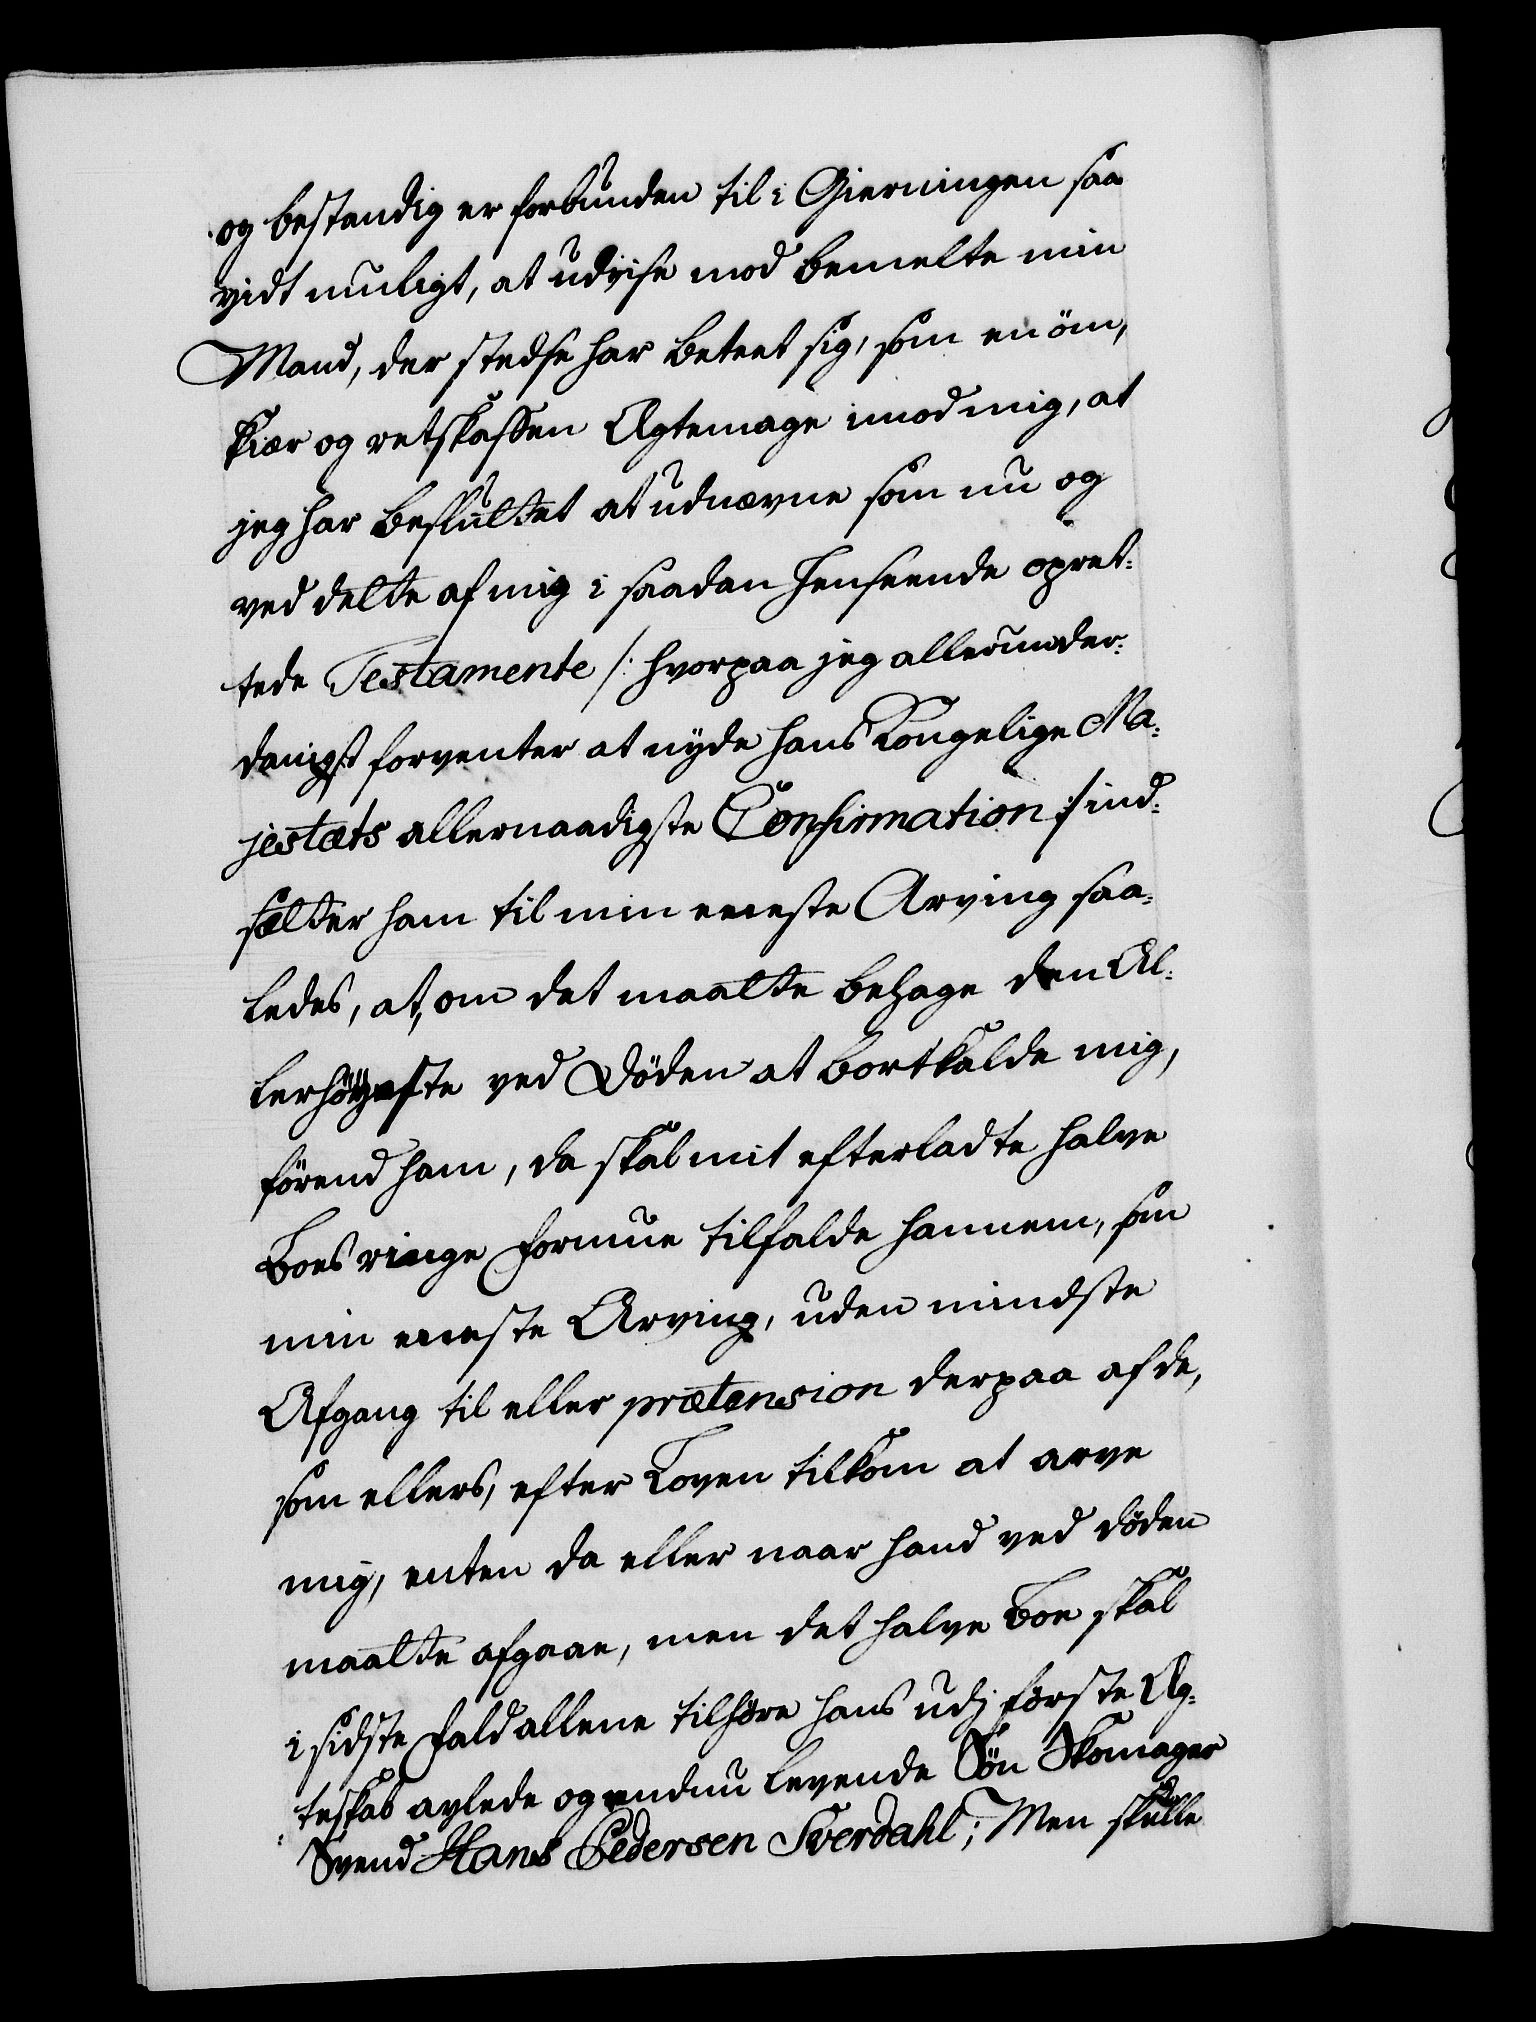 og bestandig er forbunden til i Gierningen saa
vidt mueligt, at udvise mod bemelte min
Mand, der stedse har beteet sig, som en öm,
kiær og retskaffen Ægtemage imod mig, at
jeg har besluttet at udnævne som nu og
ved dette af mig i saadan Henseende opret-
tede Testamente /: hvorpaa jeg allerunder-
danigst forventer at nyde Hans Kongelige Ma-
jestæts allernaadigste Confirmation :/ ind-
sætter ham til min eneste Arving saa-
ledes, at, om det maatte behage den Al-
lerhöyeste ved Döden at bortkalde mig,
förend ham, da skal mit efterladte halve
Boes ringe Formue tilfalde hannem, som
min eneste Arving, uden mindste
Afgang til eller prætension derpaa af de,
som ellers, efter Loven tilkom at arve
mig, enten da eller naar hand ved döden
maatte afgaae, men det halve Boe skal
i sidste Fald allene tilhöre hans udj förste Æg-
teskab avlede og endnu levende Sön Skomager
Svend Hans Pedersen Sverdahl; Men skulle